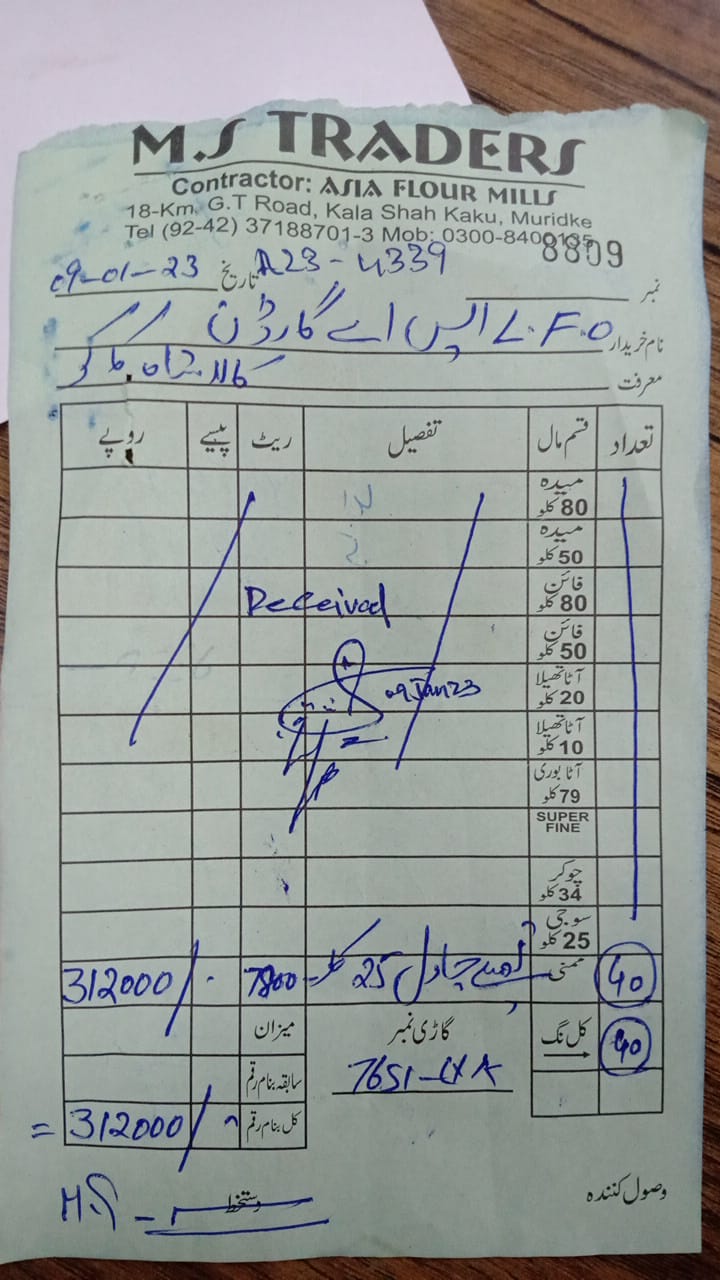 M.S TRADERS
Contractor: ASIA FLOUR MILLS
18-Km, G.T Road, Kala Shah Kaku, Muridke
Tel (92-42) 37188701-3 Mob: 0300-8400135
8809
نمبر
تاریخ 09-01-23
A23-4339
نام خریدار L.F.O ایس اے گارڈن
معرفت کالا شاہ کاکو
تعداد قسم مال تفصیل ریٹ پیسے روپے
میدہ 80 کلو
میدہ 50 کلو
فائن 80 کلو
Received
فائن 50 کلو
آٹا تھیلا 20 کلو
09 Jan 23
آٹا تھیلا 10 کلو
آٹا بوری 79 کلو
SUPER FINE
چوکر 34 کلو
سوجی 25 کلو
40 چاول 25 کلو 7800 312000/
40 کل نگ گاڑی نمبر میزان
7651
سابقہ بنام رقم
کل بنام رقم = 312000/
وصول کنندہ
دستخط